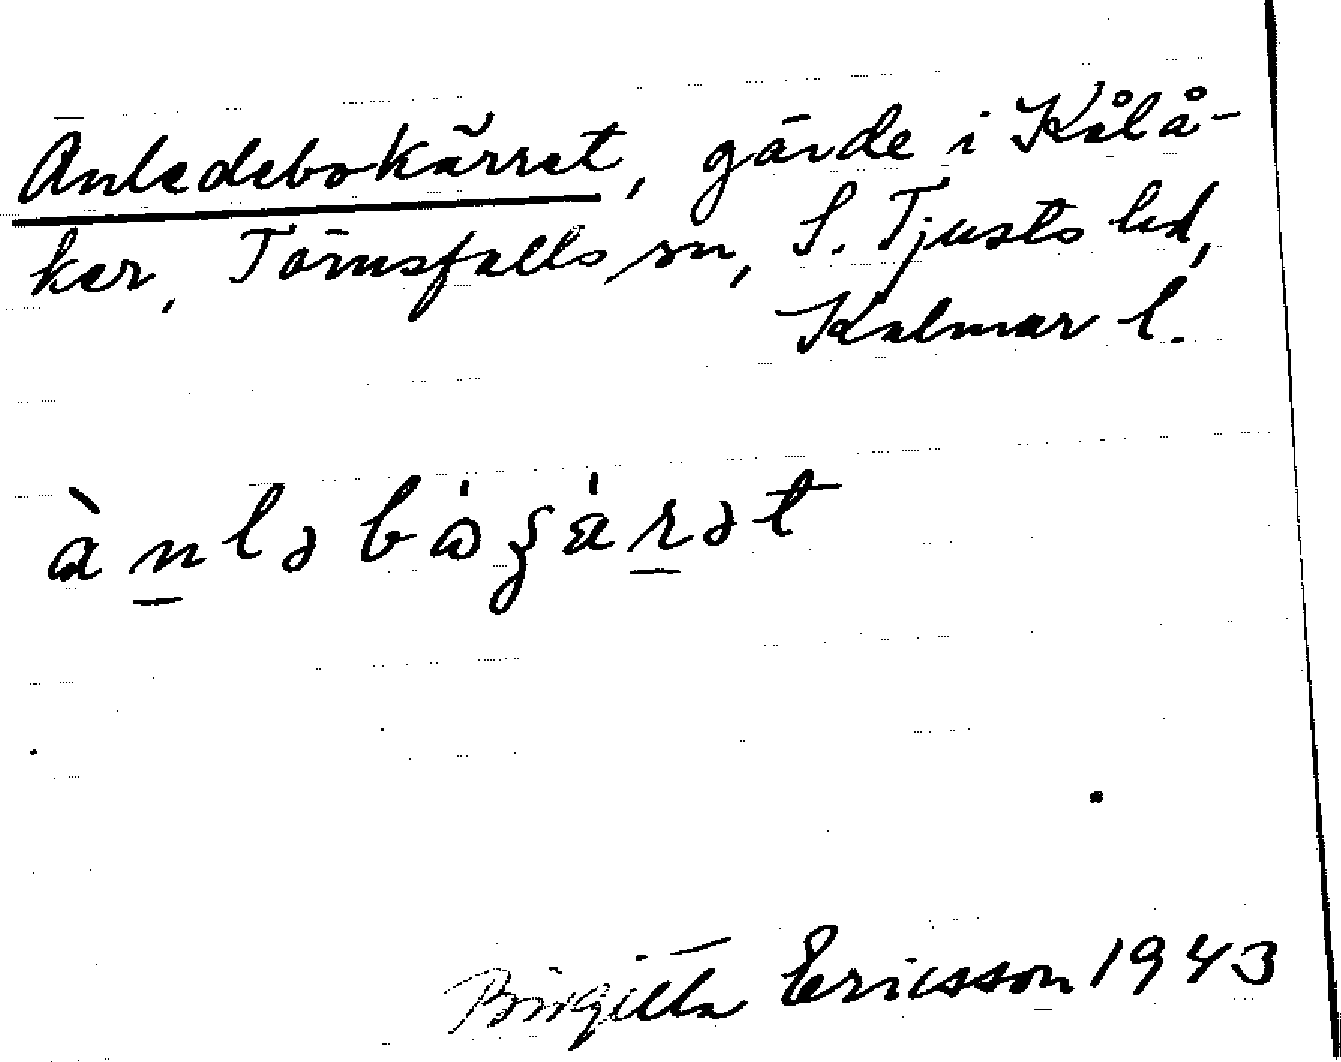 Anledebokärret, gärde i Kålå-
ker, Törnsfalls sn, S. Tjusts hd,
Kalmar l.
Birgitta Ericsson 1943